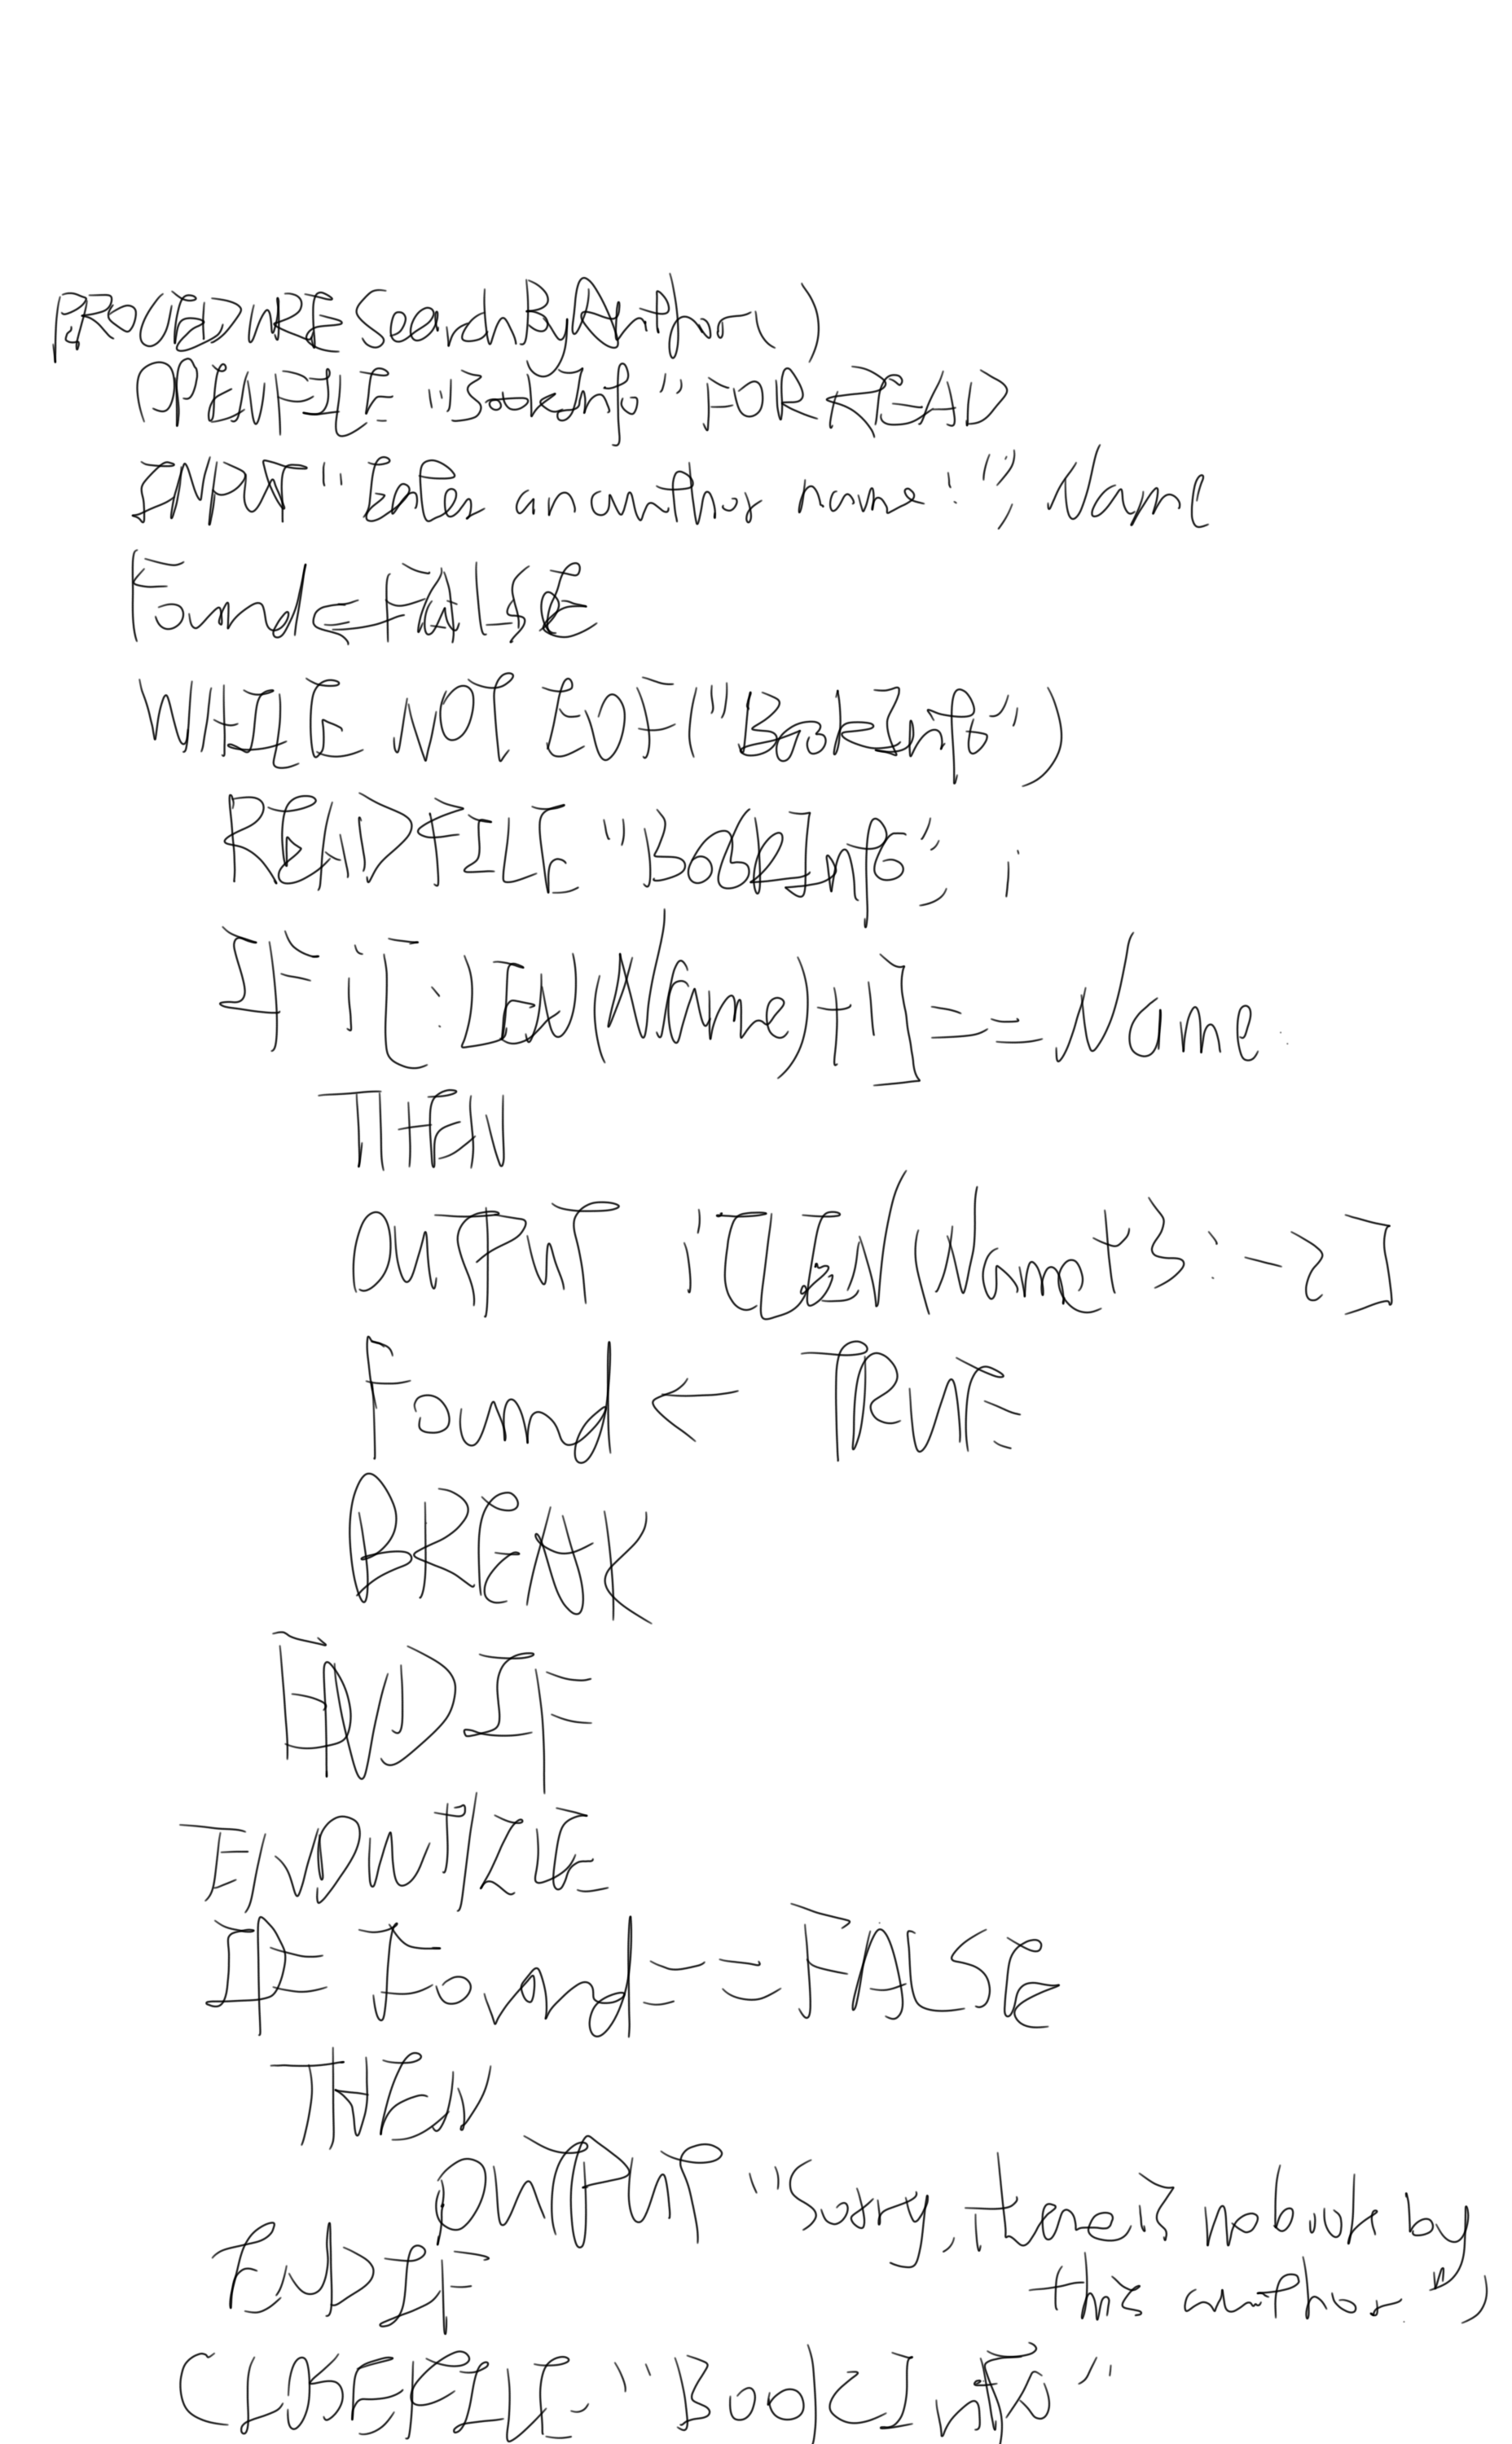 PROCEDURE SearchByAuthor()
OPENFILE "BookInfo" FOR READ
INPUT "Enter an author name:", Name
Found ← FALSE
WHILE NOT EOF("BookInfo")
READFILE "BookInfo", i
IF i[:LEN(Name)+1] == Name
THEN
OUTPUT i[LEN(Name)+3:-2]
Found ← TRUE
BREAK
ENDIF
ENDWHILE
IF Found == FALSE
THEN
OUTPUT "Sorry, there is no book by
this author.")
ENDIF
CLOSEFILE "BookInfo"